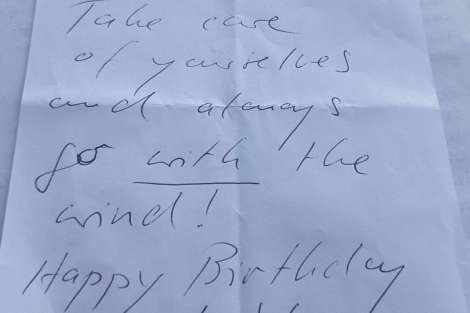 Take care
of yourselves
and always
go with the
wind!
Happy Birthday